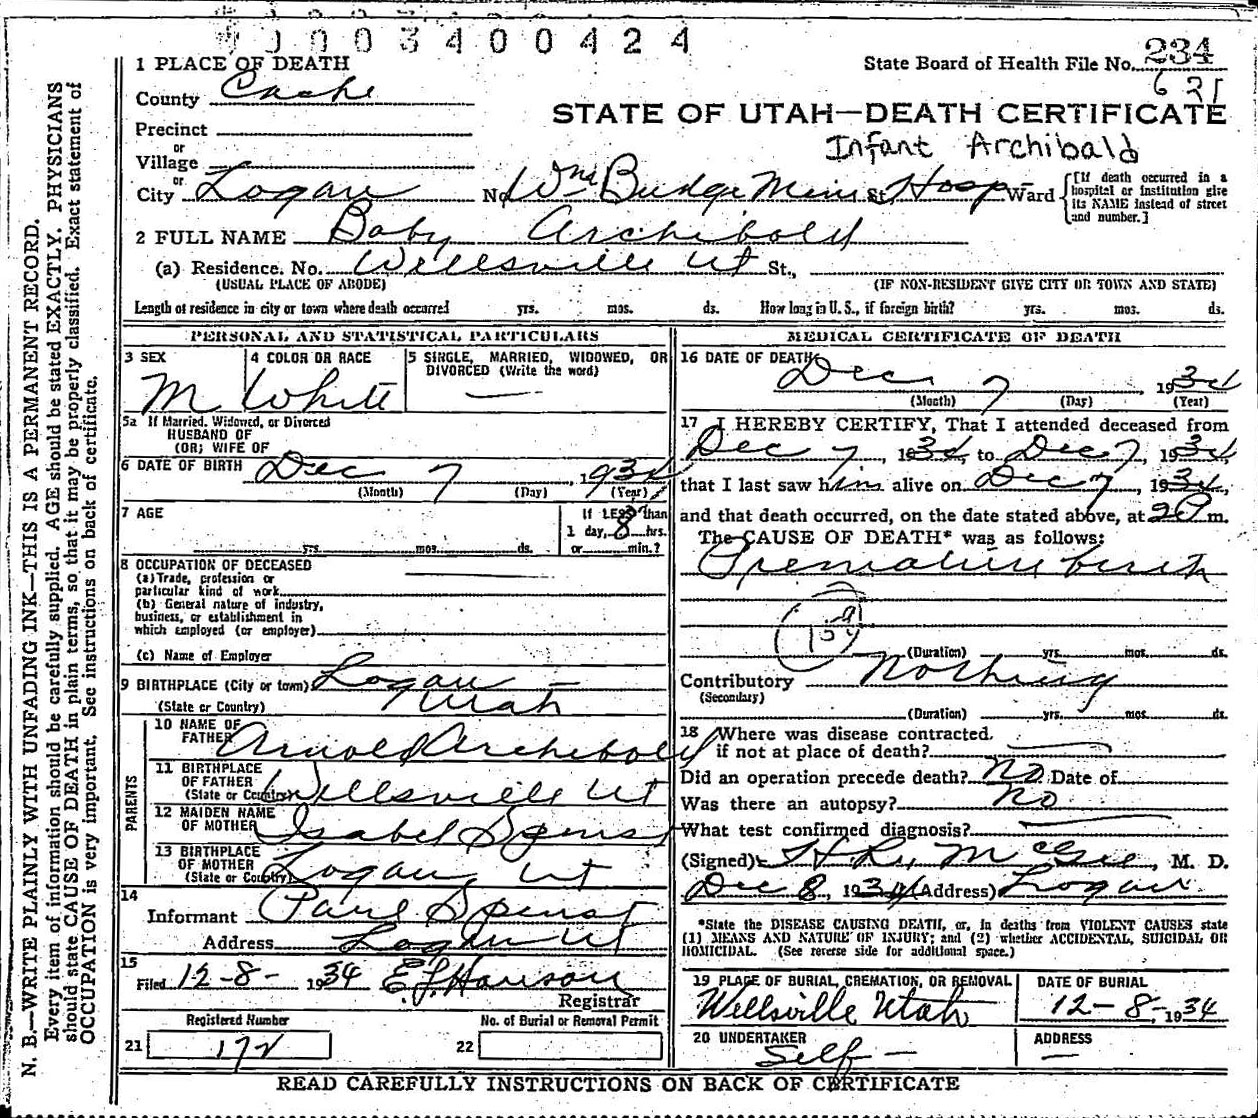 0003400424
1 PLACE OF DEATH
State Board of Health File No. 234
County Cache
621
STATE OF UTAH—DEATH CERTIFICATE
Precinct
or
Infant Archibald
Village
or
City Logan No. Wm Budge Mem St. Hosp Ward [If death occurred in a hospital or institution give its NAME instead of street and number.]
2 FULL NAME Baby Archibald
(a) Residence. No. Wellsville Ut St.,
(USUAL PLACE OF ABODE) (IF NON-RESIDENT GIVE CITY OR TOWN AND STATE)
Length of residence in city or town where death occurred yrs. mos. ds. How long in U. S., if foreign birth? yrs. mos. ds.
PERSONAL AND STATISTICAL PARTICULARS
3 SEX 4 COLOR OR RACE 5 SINGLE, MARRIED, WIDOWED, OR
DIVORCED (Write the word)
M White —
5a If Married, Widowed, or Divorced
HUSBAND OF
(OR) WIFE OF
6 DATE OF BIRTH Dec 7, 1934
(Month) (Day) (Year)
7 AGE If LESS than
1 day, 8 hrs.
yrs. mos. ds. or min.?
8 OCCUPATION OF DECEASED
(a) Trade, profession or
particular kind of work
(b) General nature of industry,
business, or establishment in
which employed (or employer)
(c) Name of Employer
9 BIRTHPLACE (City or town) Logan —
(State or Country) Utah
PARENTS
10 NAME OF
FATHER Arnold Archibald
11 BIRTHPLACE
OF FATHER
(State or Country) Wellsville Ut
12 MAIDEN NAME
OF MOTHER Isabel Spenst
13 BIRTHPLACE
OF MOTHER
(State or Country) Logan, Ut
14
Informant Paul Spenst
Address Logan Ut
15
Filed 12-8- 1934 E. J. Hanson
Registrar
Registered Number No. of Burial or Removal Permit
21 172 22
MEDICAL CERTIFICATE OF DEATH
16 DATE OF DEATH
Dec 7 1934
(Month) (Day) (Year)
17 I HEREBY CERTIFY, That I attended deceased from
Dec 7, 1934, to Dec 7, 1934,
that I last saw him alive on Dec 7, 1934,
and that death occurred, on the date stated above, at 2 P m.
The CAUSE OF DEATH* was as follows:
Premature birth
159
(Duration) yrs. mos. ds.
Contributory Nothing
(Secondary)
(Duration) yrs. mos. ds.
18 Where was disease contracted
if not at place of death? —
Did an operation precede death? No Date of
Was there an autopsy? No
What test confirmed diagnosis? —
(Signed) H. R. McGee, M. D.
Dec 8, 1934 (Address) Logan
*State the DISEASE CAUSING DEATH, or, in deaths from VIOLENT CAUSES state
(1) MEANS AND NATURE OF INJURY; and (2) whether ACCIDENTAL, SUICIDAL OR
HOMICIDAL. (See reverse side for additional space.)
19 PLACE OF BURIAL, CREMATION, OR REMOVAL DATE OF BURIAL
Wellsville Utah 12-8-, 1934
20 UNDERTAKER ADDRESS
Self — —
READ CAREFULLY INSTRUCTIONS ON BACK OF CERTIFICATE
N. B.—WRITE PLAINLY WITH UNFADING INK—THIS IS A PERMANENT RECORD.
Every item of information should be carefully supplied. AGE should be stated EXACTLY. PHYSICIANS
should state CAUSE OF DEATH in plain terms, so that it may be properly classified. Exact statement of
OCCUPATION is very important. See instructions on back of certificate.